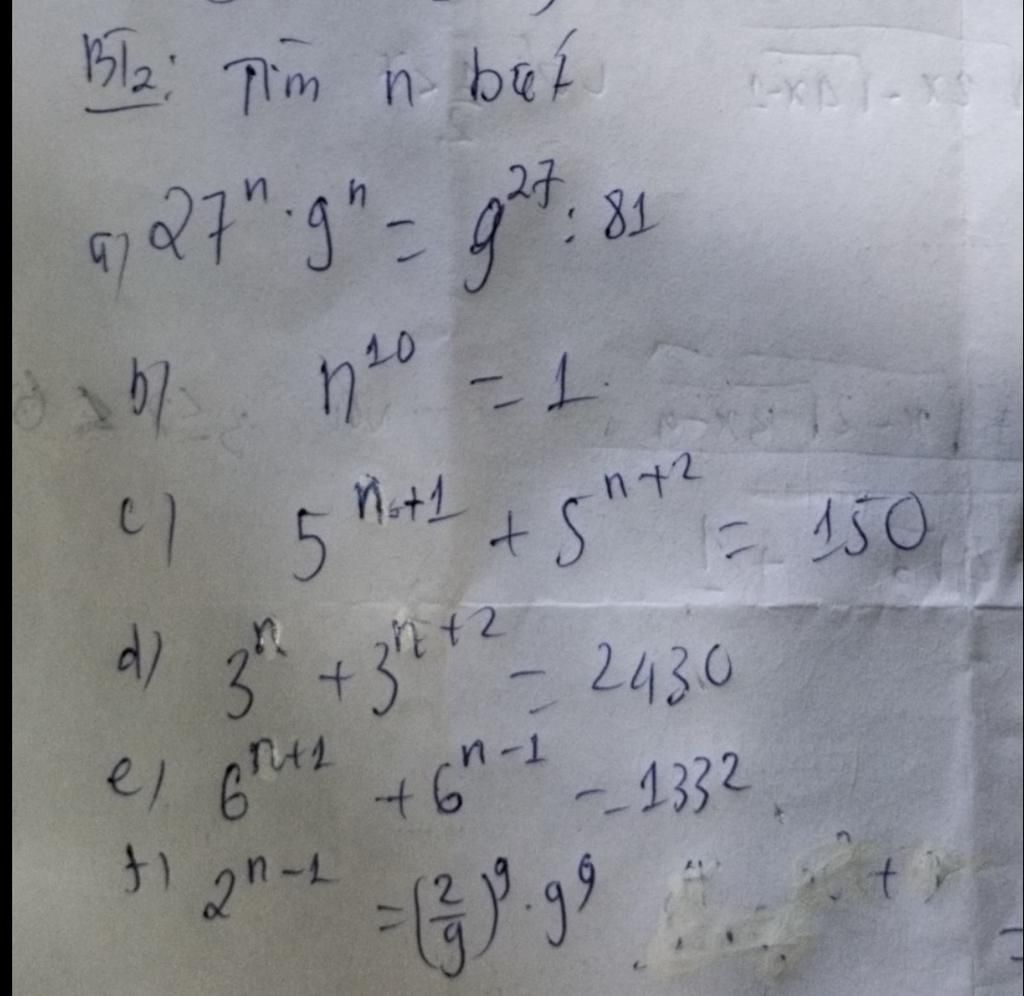 BT2: Tìm n biết
a) 27ⁿ . 9ⁿ = 9²⁷ : 81
b) n¹⁰ = 1
c) 5ⁿ⁺¹ + 5ⁿ⁺² = 150
d) 3ⁿ + 3ⁿ⁺² = 2430
e) 6ⁿ⁺¹ + 6ⁿ⁻¹ = 1332
f) 2ⁿ⁻¹ = (2/9)⁹ . 9⁹